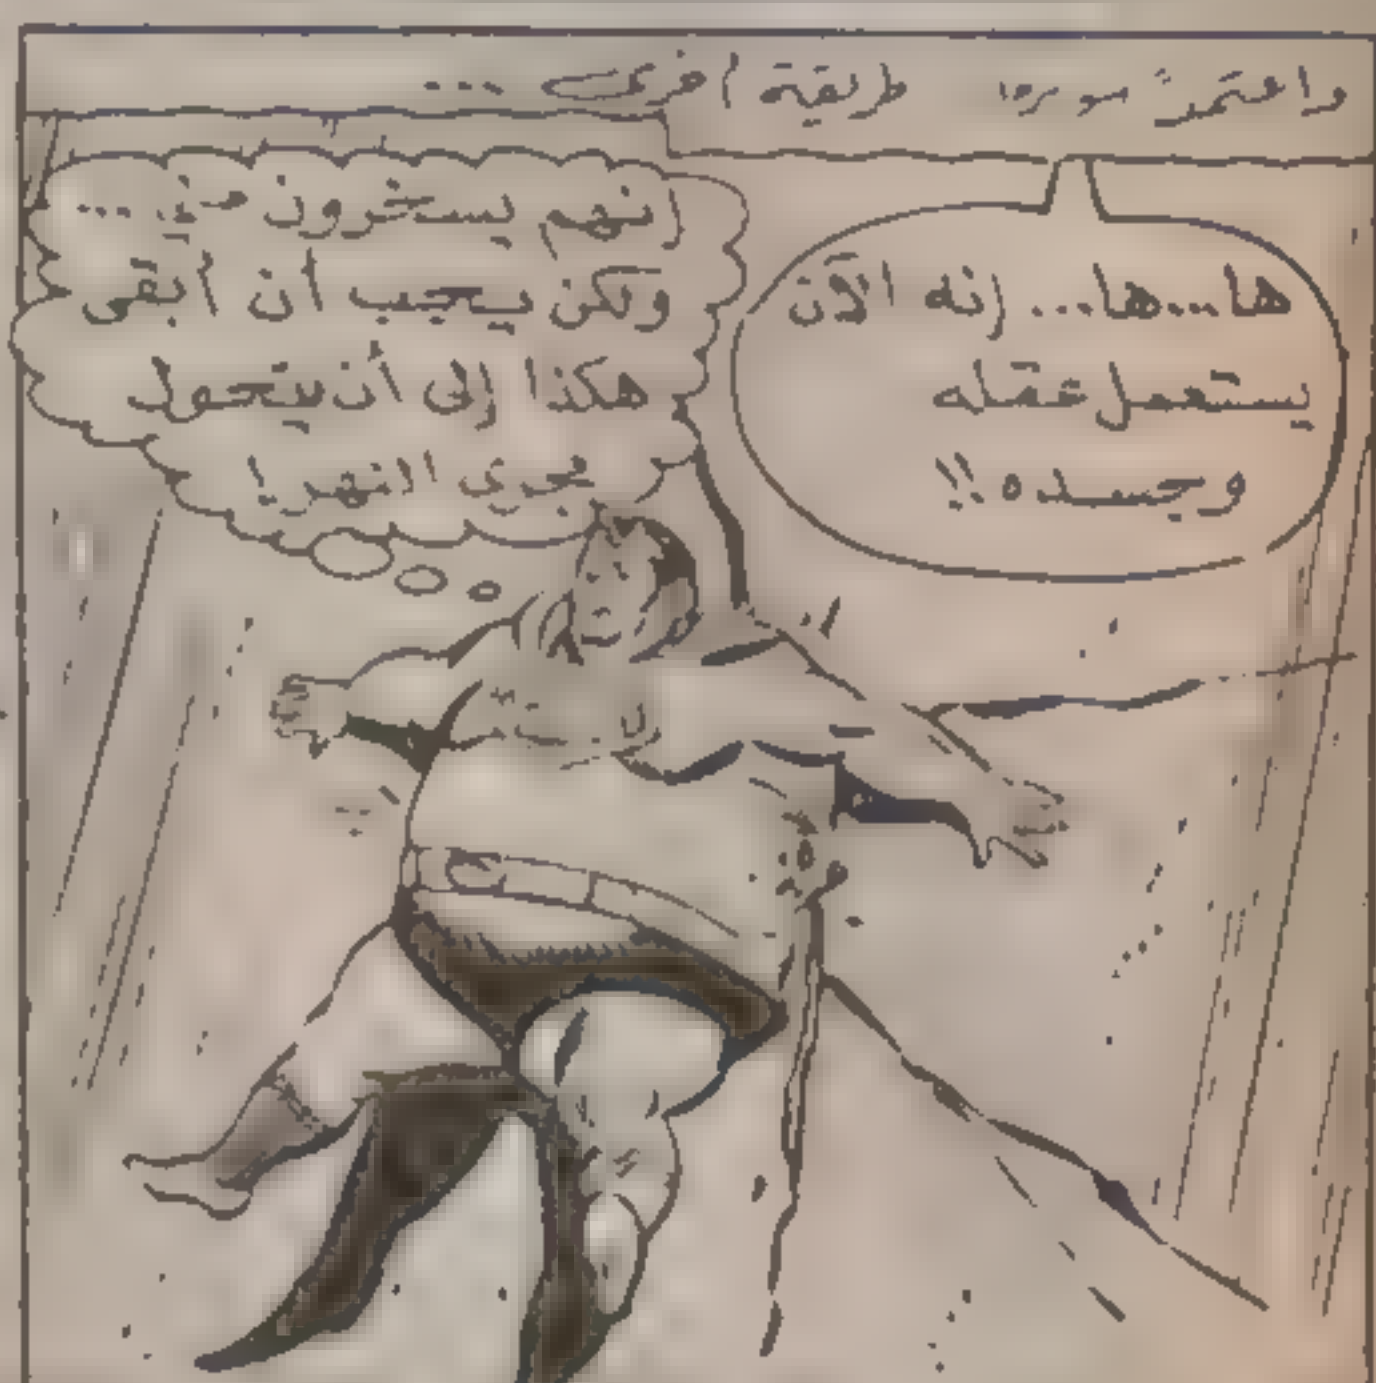 واعتمد طريقة أخرى ...
ها...ها... إنه الآن
يستعمل عقله
وجسده !!
إنهم يسخرون مني ...
ولكن يجب أن أبقى
هكذا إلى أن يتحول
مجرى النهر !